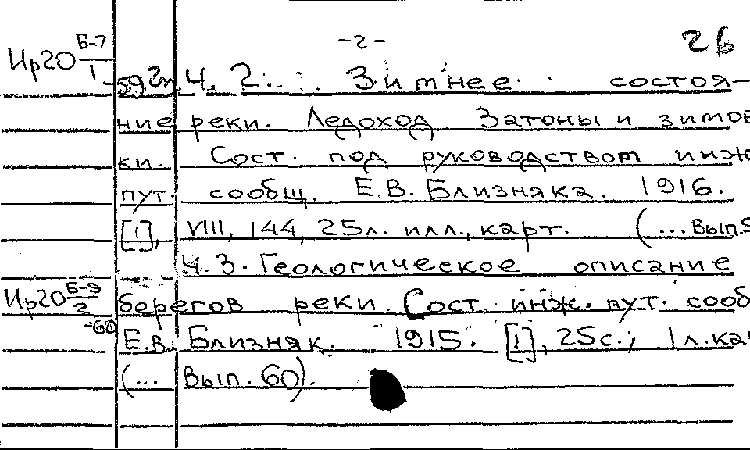 -2- 26
Ир20 Б-7/1 -592л. Ч. 2. Зимнее состоя-
ние реки. Ледоход. Затоны и зимов
ки. Сост. под руководством инж
пут. сообщ. Е.В. Близняка. 1916.
[1], VIII, 144, 25л. илл., карт. (... Вып.5
Ч.3. Геологическое описание
Ир20 Б-9/2 -60 берегов реки. Сост. инж. пут. сооб
Е.В. Близняк. 1915. [1], 25с., 1л.ка
(... Вып. 60).